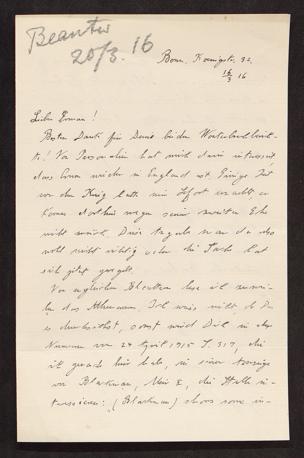 Beantw
20/3. 16
Bonn, Koenigstr. 32.
16/3 16
Lieber Erman!
Besten Dank für Deine beiden Wörterbuchberich-
te! Vor Personalien hat mich darin interessiert
dass wieder in England ist. Einige Zeit
vor dem Krieg hatte mir erzählt er
könne dorthin wegen seiner zweiten Ehe
nicht zurück. Diese Angabe war da also
wohl nicht richtig oder die Sache hat
sich jetzt geregelt.
Von englischen Blättern lese ich
das Athenaeum. Ich weiss nicht ob Du
es durchsiehst, sonst wird Dich in der
Nummer vom 24 April 1915 S. 317, die
ich gerade hier habe, in einer Anzeige
von Blackman, Meir II, die Stelle in-
teressieren: (Blackman) shows some in-